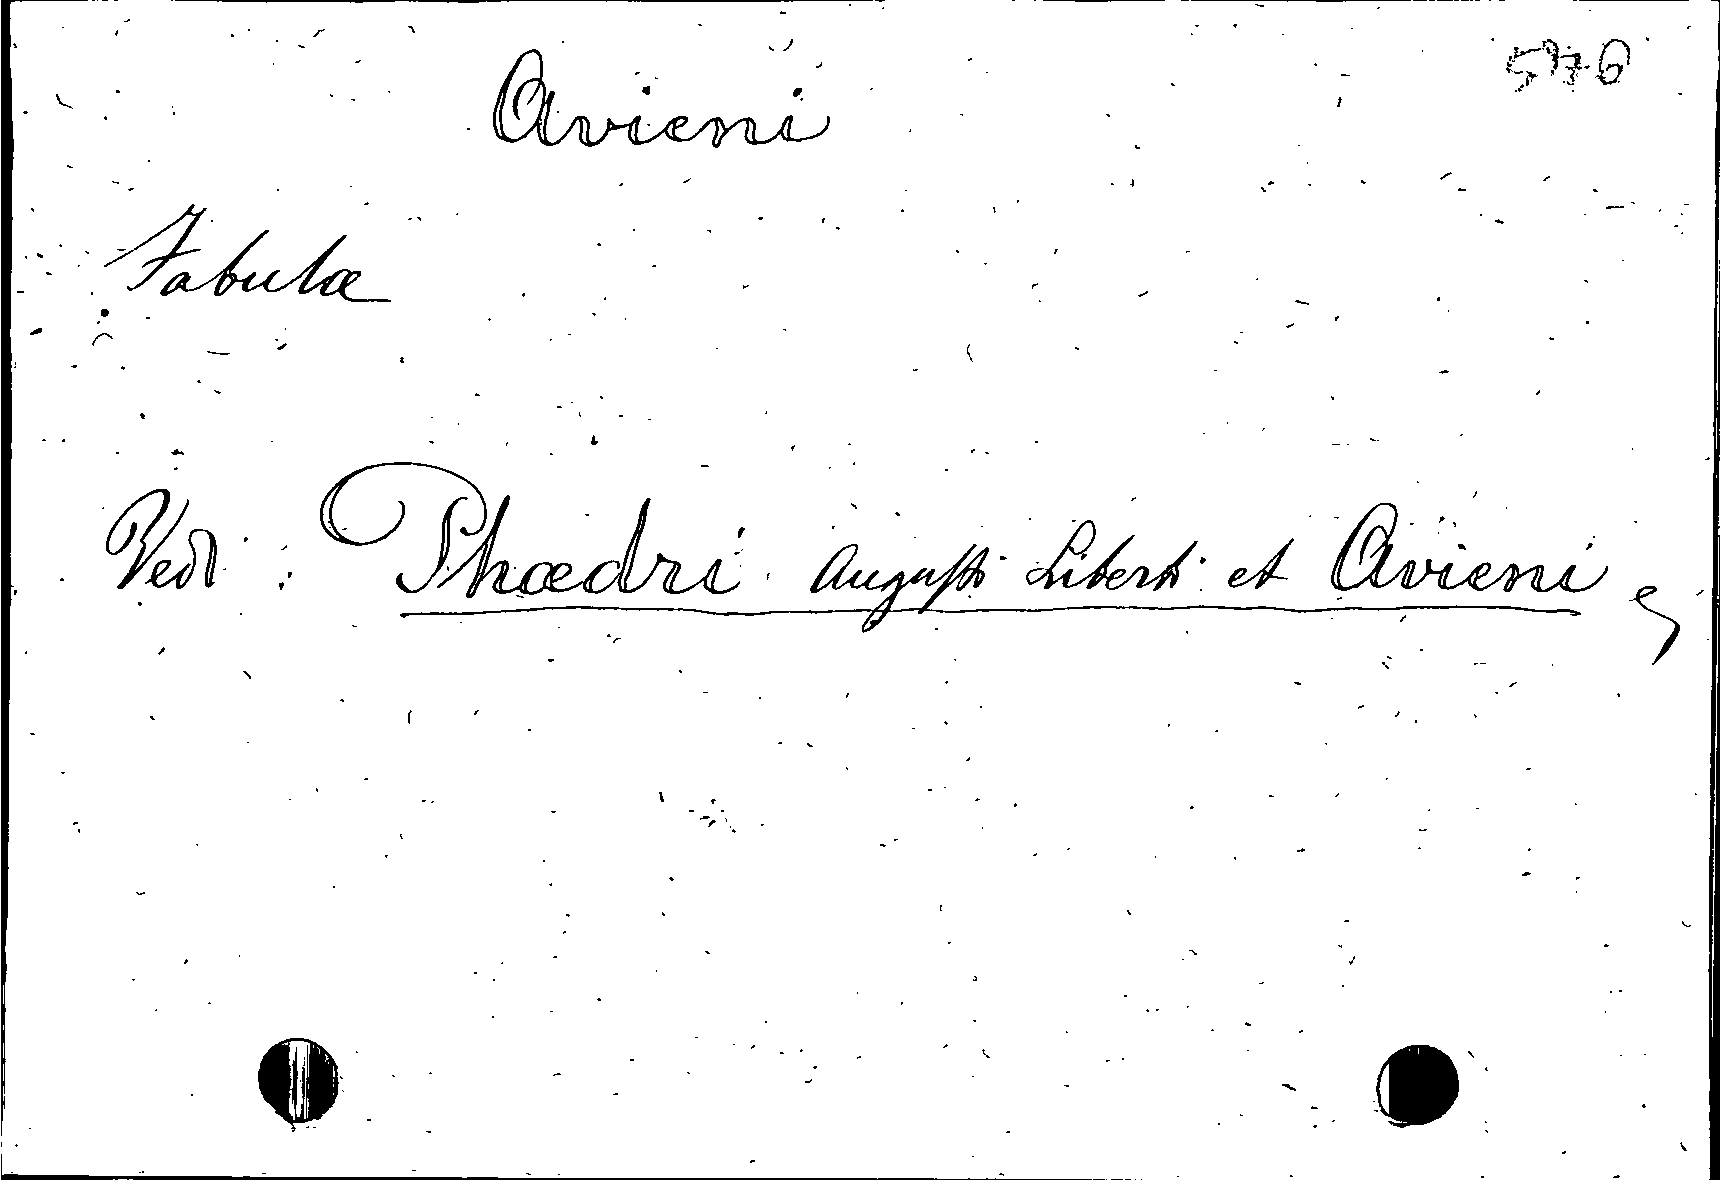 576
Avieni
Fabulæ
Vedi : Phædri Augusti Liberti et Avieni